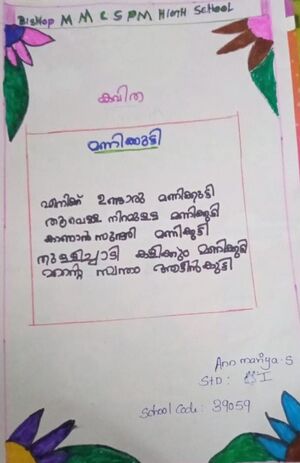 BisHop M M C S P M HIGH SCHOOL
കവിത
മണിക്കുട്ടി
എനിക്ക് ഉണ്ടൊരു മണിക്കുട്ടി
തൂവെള്ള നിറമുള്ള മണിക്കുട്ടി
കാണാൻ സുന്ദരി മണിക്കുട്ടി
തുള്ളിച്ചാടി കളിക്കും മണിക്കുട്ടി
എന്റെ സ്വന്തം ആട്ടിൻകുട്ടി
Ann mariya.S
STD : I
School Code : 39059